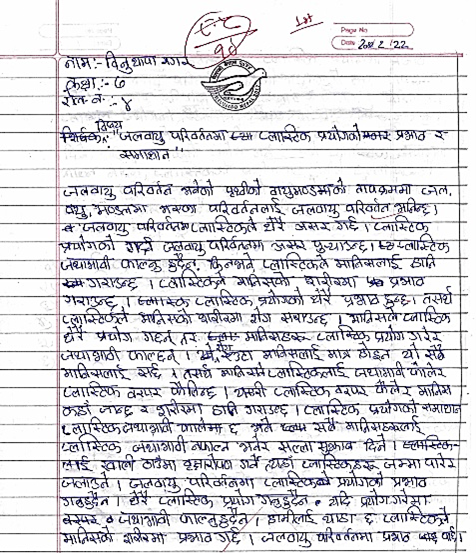 1st
Page No
Date 2080/2/22
नाम:- विनु थापा मगर
कक्षा:- ७
रोल नं.- ४
विषय
शिर्षक:- "जलवायु परिवर्तनमा प्लास्टिक प्रयोगको प्रभाव र
समाधान"
जलवायु परिवर्तन भनेको पृथ्वीको वायुमण्डलको तापक्रममा जल,
वायु, मण्डलमा भएका परिवर्तनलाई जलवायु परिवर्तन भनिन्छ।
जलवायु परिवर्तनमा प्लास्टिकले धेरै असर गर्छ। प्लास्टिक
प्रयोगको जलवायु परिवर्तनमा असर पुर्‍याउँछ। प्लास्टिक
जथाभावी फाल्नु हुदैन, किनभने प्लास्टिकले मानिसलाई हानि
गराउछ। प्लास्टिकले मानिसको शरीरमा प्रभाव
गराउछ। प्लास्टिक प्रयोगको धेरै प्रभाव हुन्छ। तसर्थ
प्लास्टिकले मानिसको शरीरमा रोग सराउछ। मानिसले प्लास्टिक
धेरै प्रयोग गर्छन् तर मानिसहरू प्लास्टिक प्रयोग गरेर
जथाभावी फाल्छन्। मानिसलाई मात्र होइन यो सबै
मानिसलाई सर्छ। तसर्थ मानिसले प्लास्टिकलाई जथाभावी फालेर
प्लास्टिक वरपर फालिन्छ। यसरी प्लास्टिक वरपर फालेर मानिस
कहाँ जान्छ र शरीरमा हानि गराउछ। प्लास्टिक प्रयोगको समाधान
प्लास्टिक जथाभावी फालेमा छ भने सबै मानिसहरुलाई
प्लास्टिक जथाभावी नफाल्न भनेर सल्ला सुझाव दिने। प्लास्टिक-
लाई खाल्डो प्लास्टिकहरू जम्मा पारेर
जलाउने। जलवायु परिवर्तनमा प्लास्टिकको प्रयोगको प्रभाव
गर्नुहुदैन। धेरै प्लास्टिक प्रयोग गर्नुहुदैन र यदि प्रयोग गरेमा
वरपर जथाभावी फाल्नुहुदैन। हामीलाई थाहा छ प्लास्टिकले
मानिसको शरीरमा प्रभाव गर्छ। जलवायु परिवर्तनमा प्रभाव पार्छ।